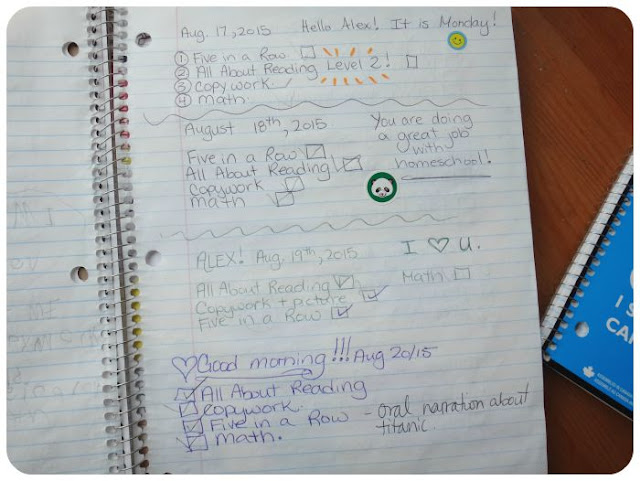 Aug. 17, 2015 Hello Alex! It is Monday!
① Five in a Row
② All About Reading Level 2!
③ Copywork
④ math
August 18th, 2015
Five in a Row
All About Reading
Copywork
math
You are doing
a great job
with
homeschool!
ALEX! Aug. 19th, 2015 I ♡ U.
All About Reading
Copywork + picture
Five in a Row
Math
♡ Good morning!!! Aug 20/15
All About Reading
Copywork
Five in a Row - oral narration about
titanic.
math.
I
CA